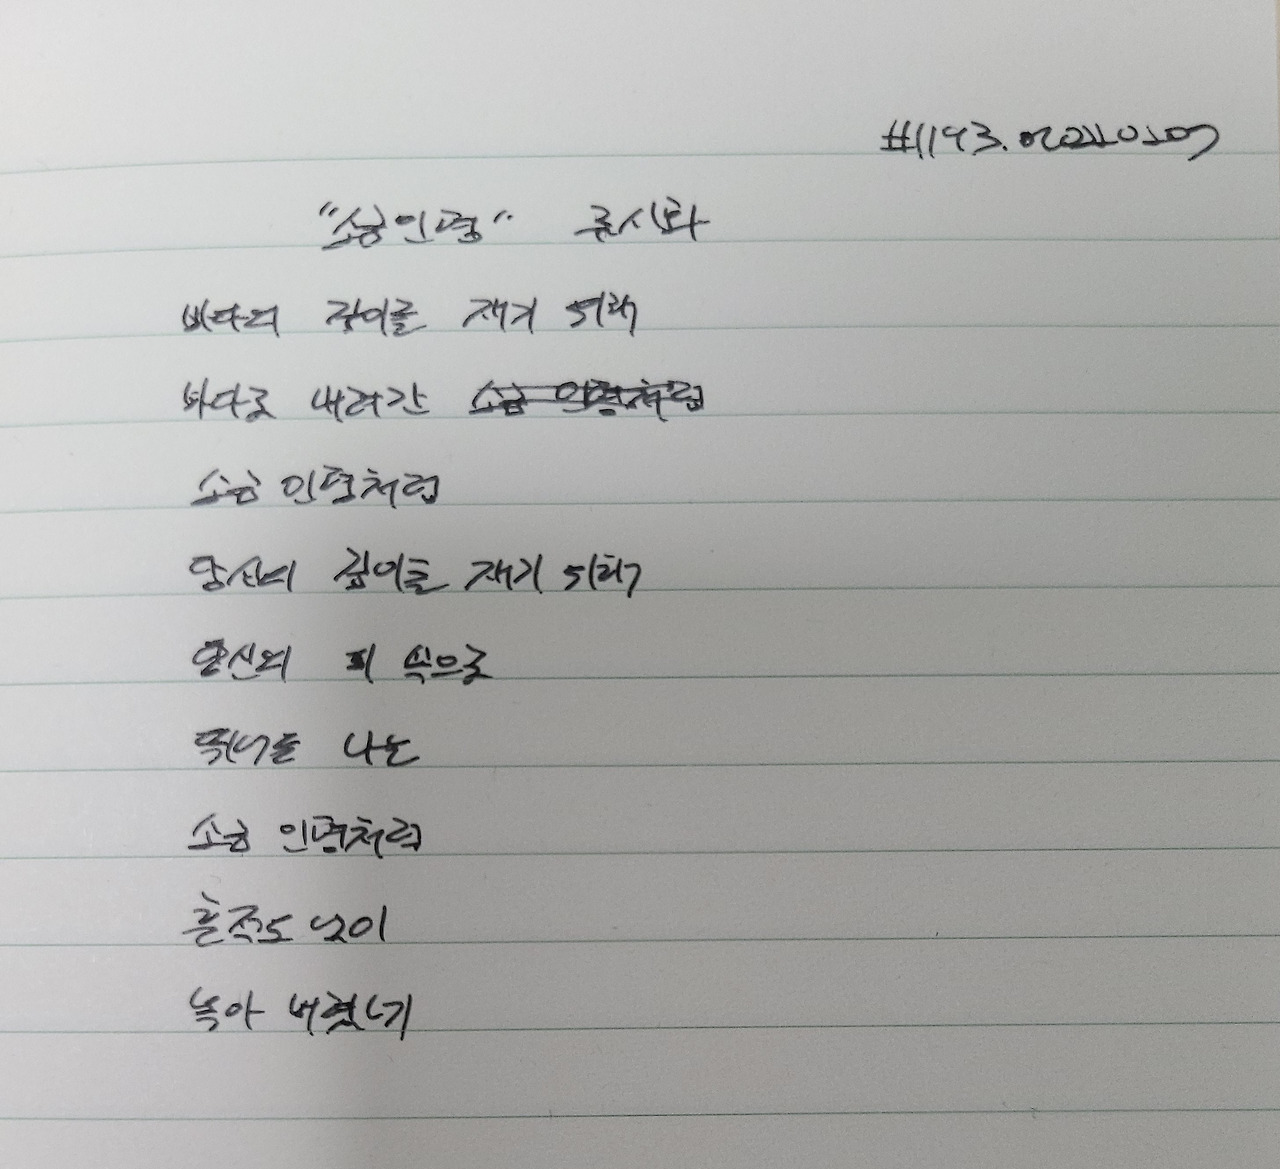 #1193.
"소금인형" 류시화
바다의 깊이를 재기 위해
바다로 내려간 소금 인형처럼
소금 인형처럼
당신의 깊이를 재기 위해
당신의 피 속으로
뛰어든 나는
소금 인형처럼
흔적도 없이
녹아 버렸네